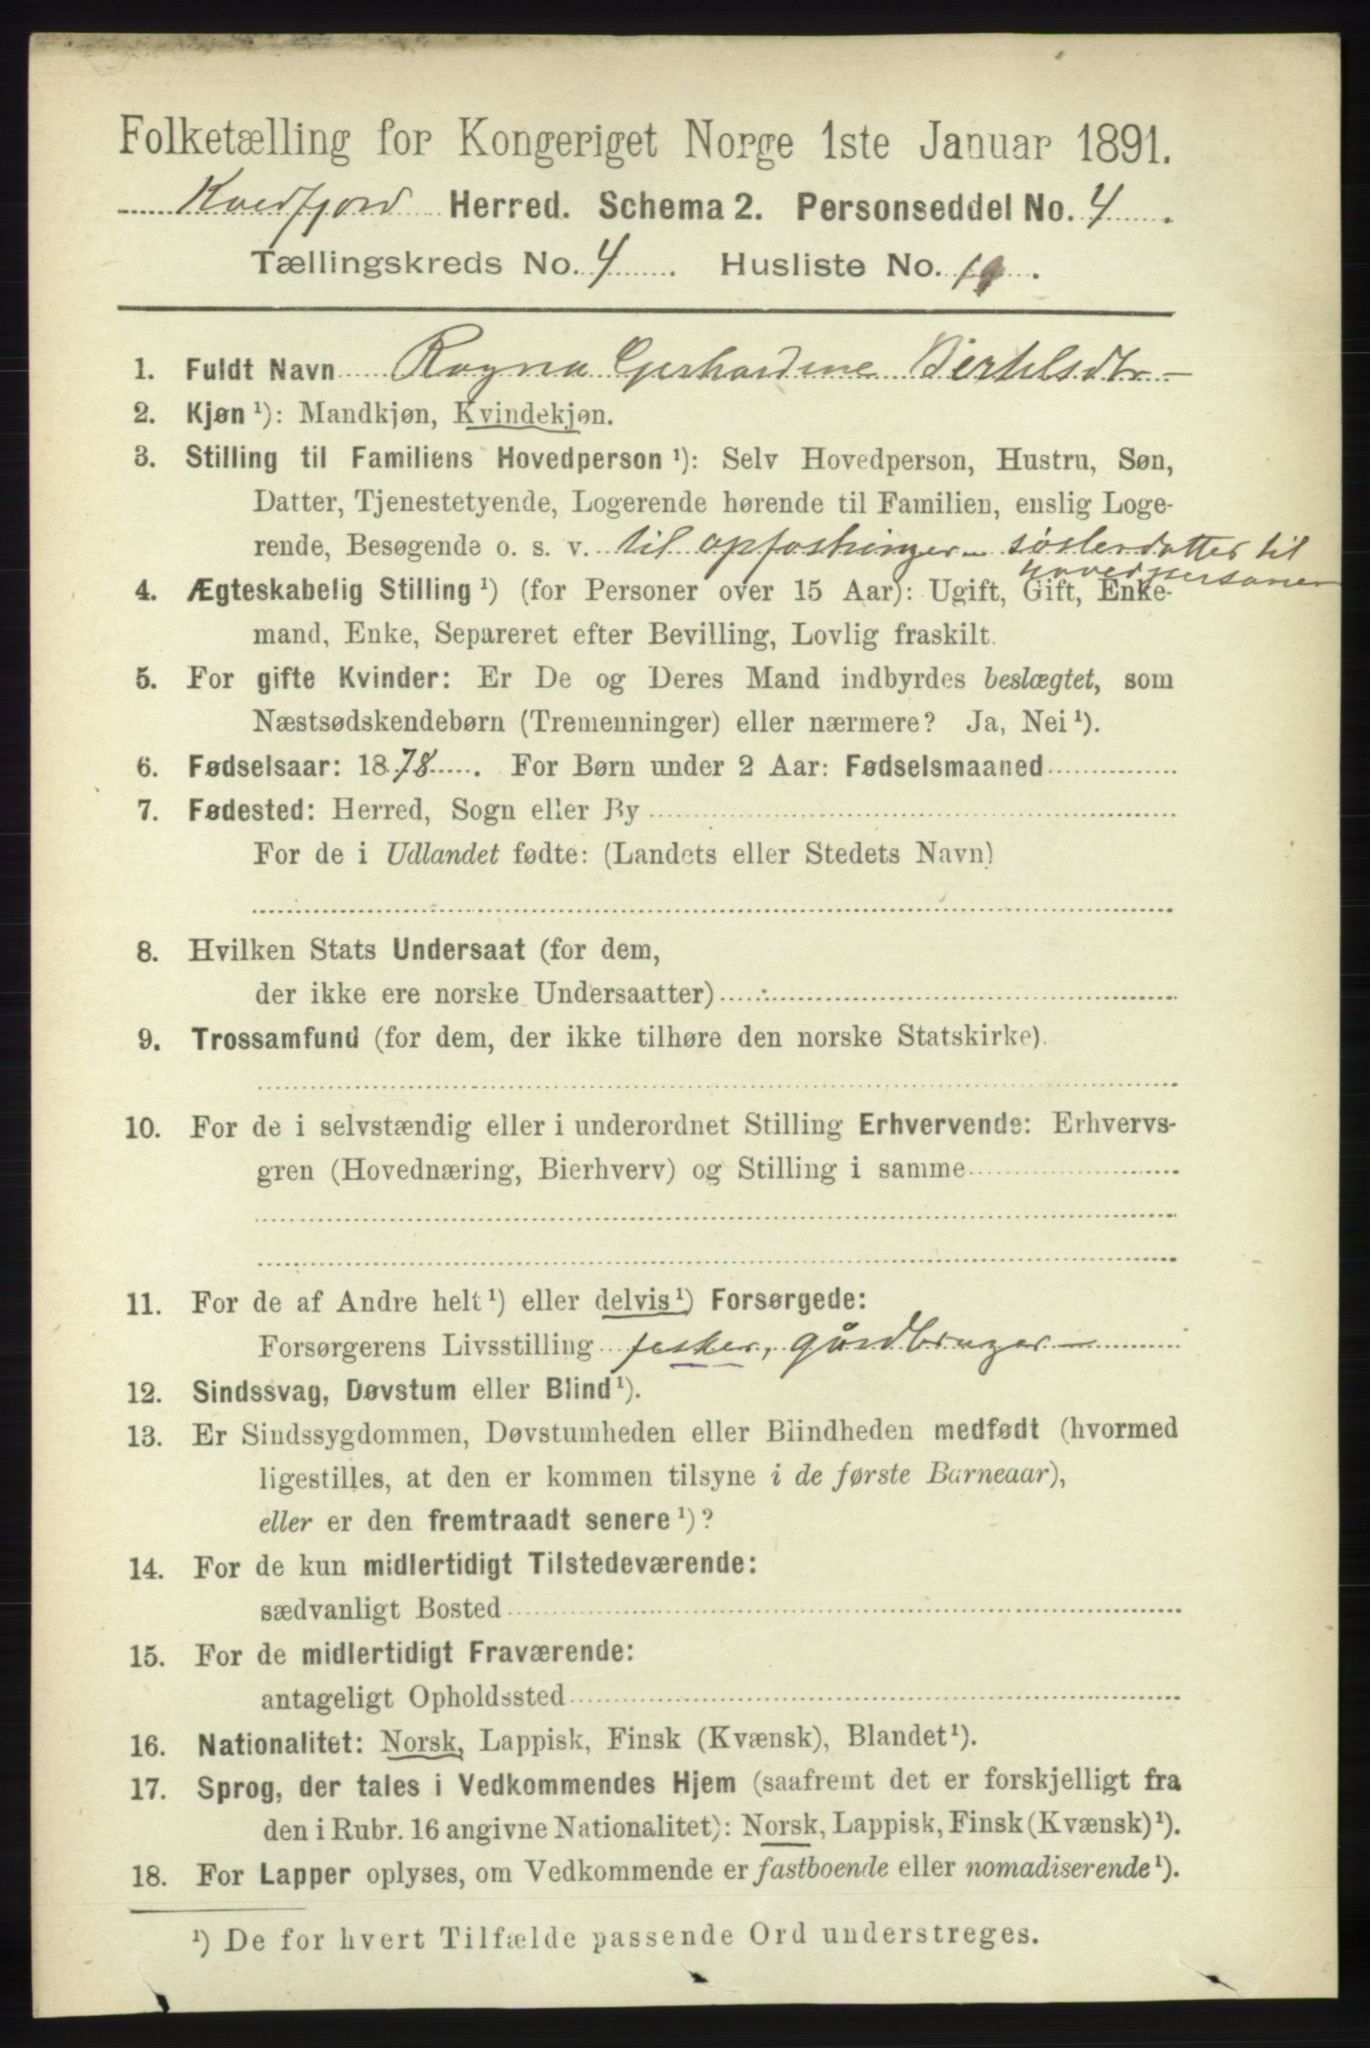 Folketælling for Kongeriget Norge 1ste Januar 1891.
Kvedfjord Herred. Schema 2. Personseddel No. 4.
Tællingskreds No. 4. Husliste No. 19.
1. Fuldt Navn Ragna Gerhardine Bertelsdtr
2. Kjøn ¹): Mandkjøn, Kvindekjøn.
3. Stilling til Familiens Hovedperson ¹): Selv Hovedperson, Hustru, Søn,
Datter, Tjenestetyende, Logerende hørende til Familien, enslig Loge-
rende, Besøgende o. s. v. til opfostringer søsterdatter til
hovedpersonen
4. Ægteskabelig Stilling ¹) (for Personer over 15 Aar): Ugift, Gift, Enke-
mand, Enke, Separeret efter Bevilling, Lovlig fraskilt.
5. For gifte Kvinder: Er De og Deres Mand indbyrdes beslægtet, som
Næstsødskendebørn (Tremenninger) eller nærmere? Ja, Nei ¹).
6. Fødselsaar: 1878. For Børn under 2 Aar: Fødselsmaaned
7. Fødested: Herred, Sogn eller By
For de i Udlandet fødte: (Landets eller Stedets Navn)
8. Hvilken Stats Undersaat (for dem,
der ikke ere norske Undersaatter)
9. Trossamfund (for dem, der ikke tilhøre den norske Statskirke).
10. For de i selvstændig eller i underordnet Stilling Erhvervende: Erhvervs-
gren (Hovednæring, Bierhverv) og Stilling i samme
11. For de af Andre helt ¹) eller delvis ¹) Forsørgede:
Forsørgerens Livsstilling fisker, gårdbruger
12. Sindssvag, Døvstum eller Blind ¹).
13. Er Sindssygdommen, Døvstumheden eller Blindheden medfødt (hvormed
ligestilles, at den er kommen tilsyne i de første Barneaar),
eller er den fremtraadt senere ¹)?
14. For de kun midlertidigt Tilstedeværende:
sædvanligt Bosted
15. For de midlertidigt Fraværende:
antageligt Opholdssted
16. Nationalitet: Norsk, Lappisk, Finsk (Kvænsk), Blandet ¹).
17. Sprog, der tales i Vedkommendes Hjem (saafremt det er forskjelligt fra
den i Rubr. 16 angivne Nationalitet): Norsk, Lappisk, Finsk (Kvænsk) ¹).
18. For Lapper oplyses, om Vedkommende er fastboende eller nomadiserende ¹).
¹) De for hvert Tilfælde passende Ord understreges.